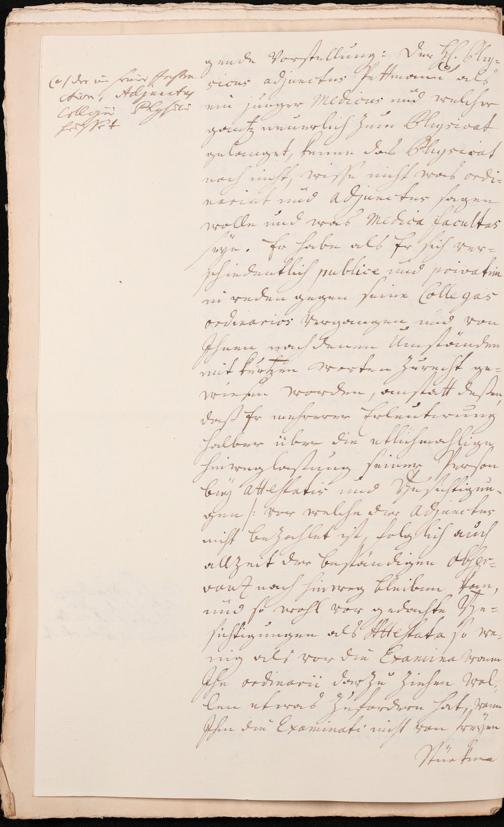 (a) der in keine
ction, Adjunctus
Collegii Physici
gende Vorstellung: Der H. Phy-
sicus adjunctus Dettmann als
ein junger Medicus und welcher
gantz neuerlich zum Physicat
gelanget, kenne das Physicat
noch nicht, wisse nicht was ordi-
nariat und Adjunctus sagen
wolle und was Medica facultas
seye. Er habe als Er sich ver-
schiedentlich publice und privatim
in reden gegen seine Collegas
ordinarios vergangen und von
Ihnen nach denen Umständen
mit kurtzen worten zurecht ge-
wiesen worden, anstatt dessen,
daß Er mehrerer Erleuterung
halber über die etlichmahlige
hinweglassung seiner Person
bey Attestatis und Besichtigun-
gen /: vor welche der Adjunctus
nicht bezahlet ist, folglich auch
allzeit der beständigen Obser-
vantz nach hinweg bleiben kan,
und so wohl vor gedachte Be-
sichtigungen als Attestata so we-
nig als vor die Examina wann
Ihn ordinarii darzu ziehen wol-
len etwas zufordern hat, wann
Ihm die Examinati nicht von freyen
Stücken